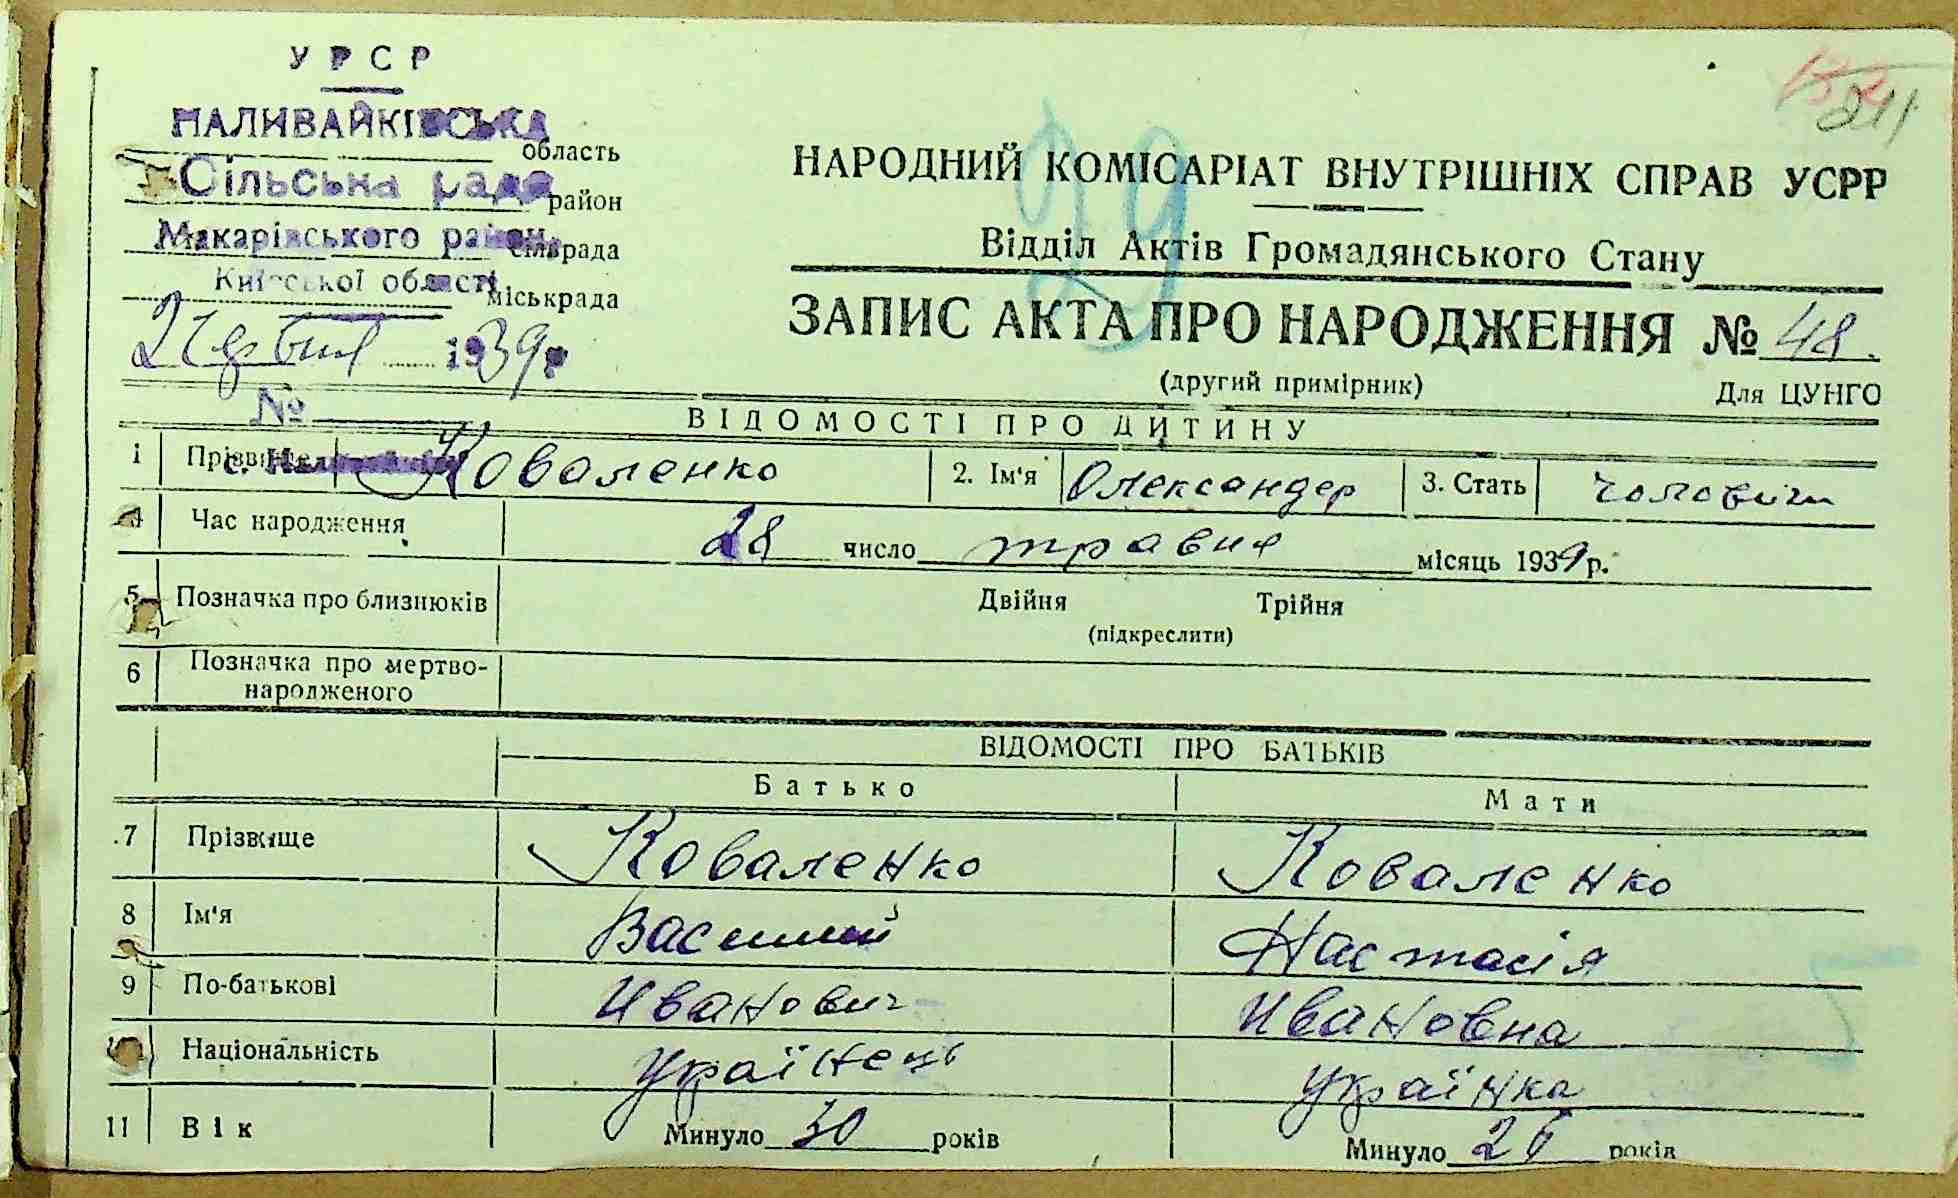 УРСР
НАЛИВАЙКІВСЬКА
область
Сільська рада
район
Макарівського району
сільрада
Київської області
міськрада
2 червня 1939 р.
№
с.
132
211
29
НАРОДНИЙ КОМІСАРІАТ ВНУТРІШНІХ СПРАВ УСРР
Відділ Актів Громадянського Стану
ЗАПИС АКТА ПРО НАРОДЖЕННЯ № 48.
(другий примірник) Для ЦУНГО
ВІДОМОСТІ ПРО ДИТИНУ
1 Прізвище Коваленко 2. Ім'я Олександер 3. Стать чоловіч
4 Час народження 28 число травня місяць 1939 р.
5 Позначка про близнюків Двійня Трійня
(підкреслити)
6 Позначка про мертво-
народженого
ВІДОМОСТІ ПРО БАТЬКІВ
Батько Мати
7 Прізвище Коваленко Коваленко
8 Ім'я Василий Настасія
9 По-батькові Иванович Ивановна
Національність Українець Українка
11 Вік Минуло 30 років Минуло 26 років